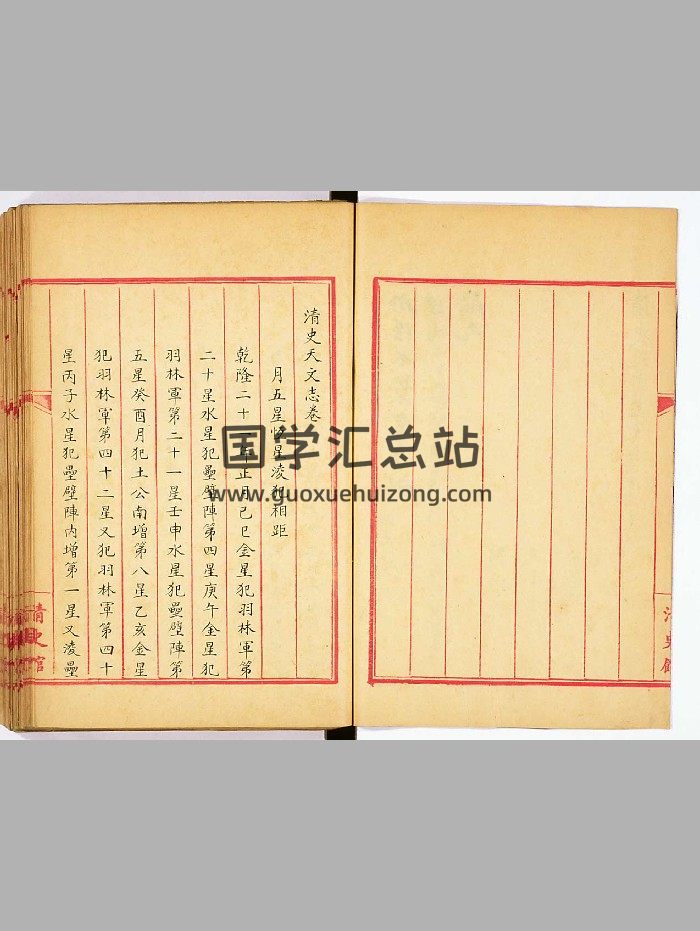 清史天文志卷
月五星恆星凌犯相距
乾隆二十年正月己巳金星犯羽林軍第
二十星水星犯壘壁陣第四星庚午金星犯
羽林軍第二十一星壬申水星犯壘壁陣第
五星癸酉月犯土公南增第八星乙亥金星
犯羽林軍第四十二星又犯羽林軍第四十
星丙子水星犯壘壁陣內增第一星又凌壘
清史館
清史館
国学汇总站
www.guoxuehuizong.com